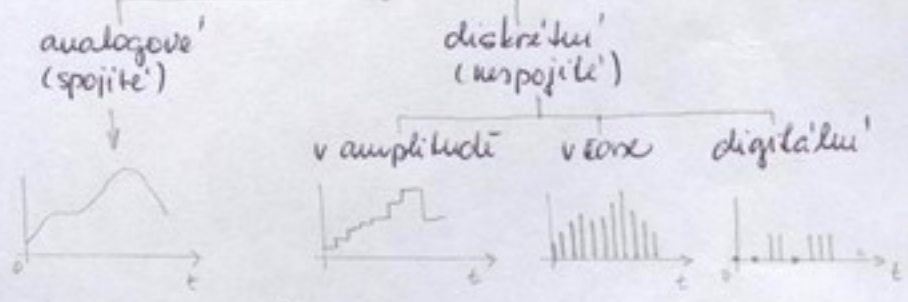 analogové
(spojité)
diskrétní
(nespojité)
v amplitudě
v čase
digitální
0
t
t
t
0
t